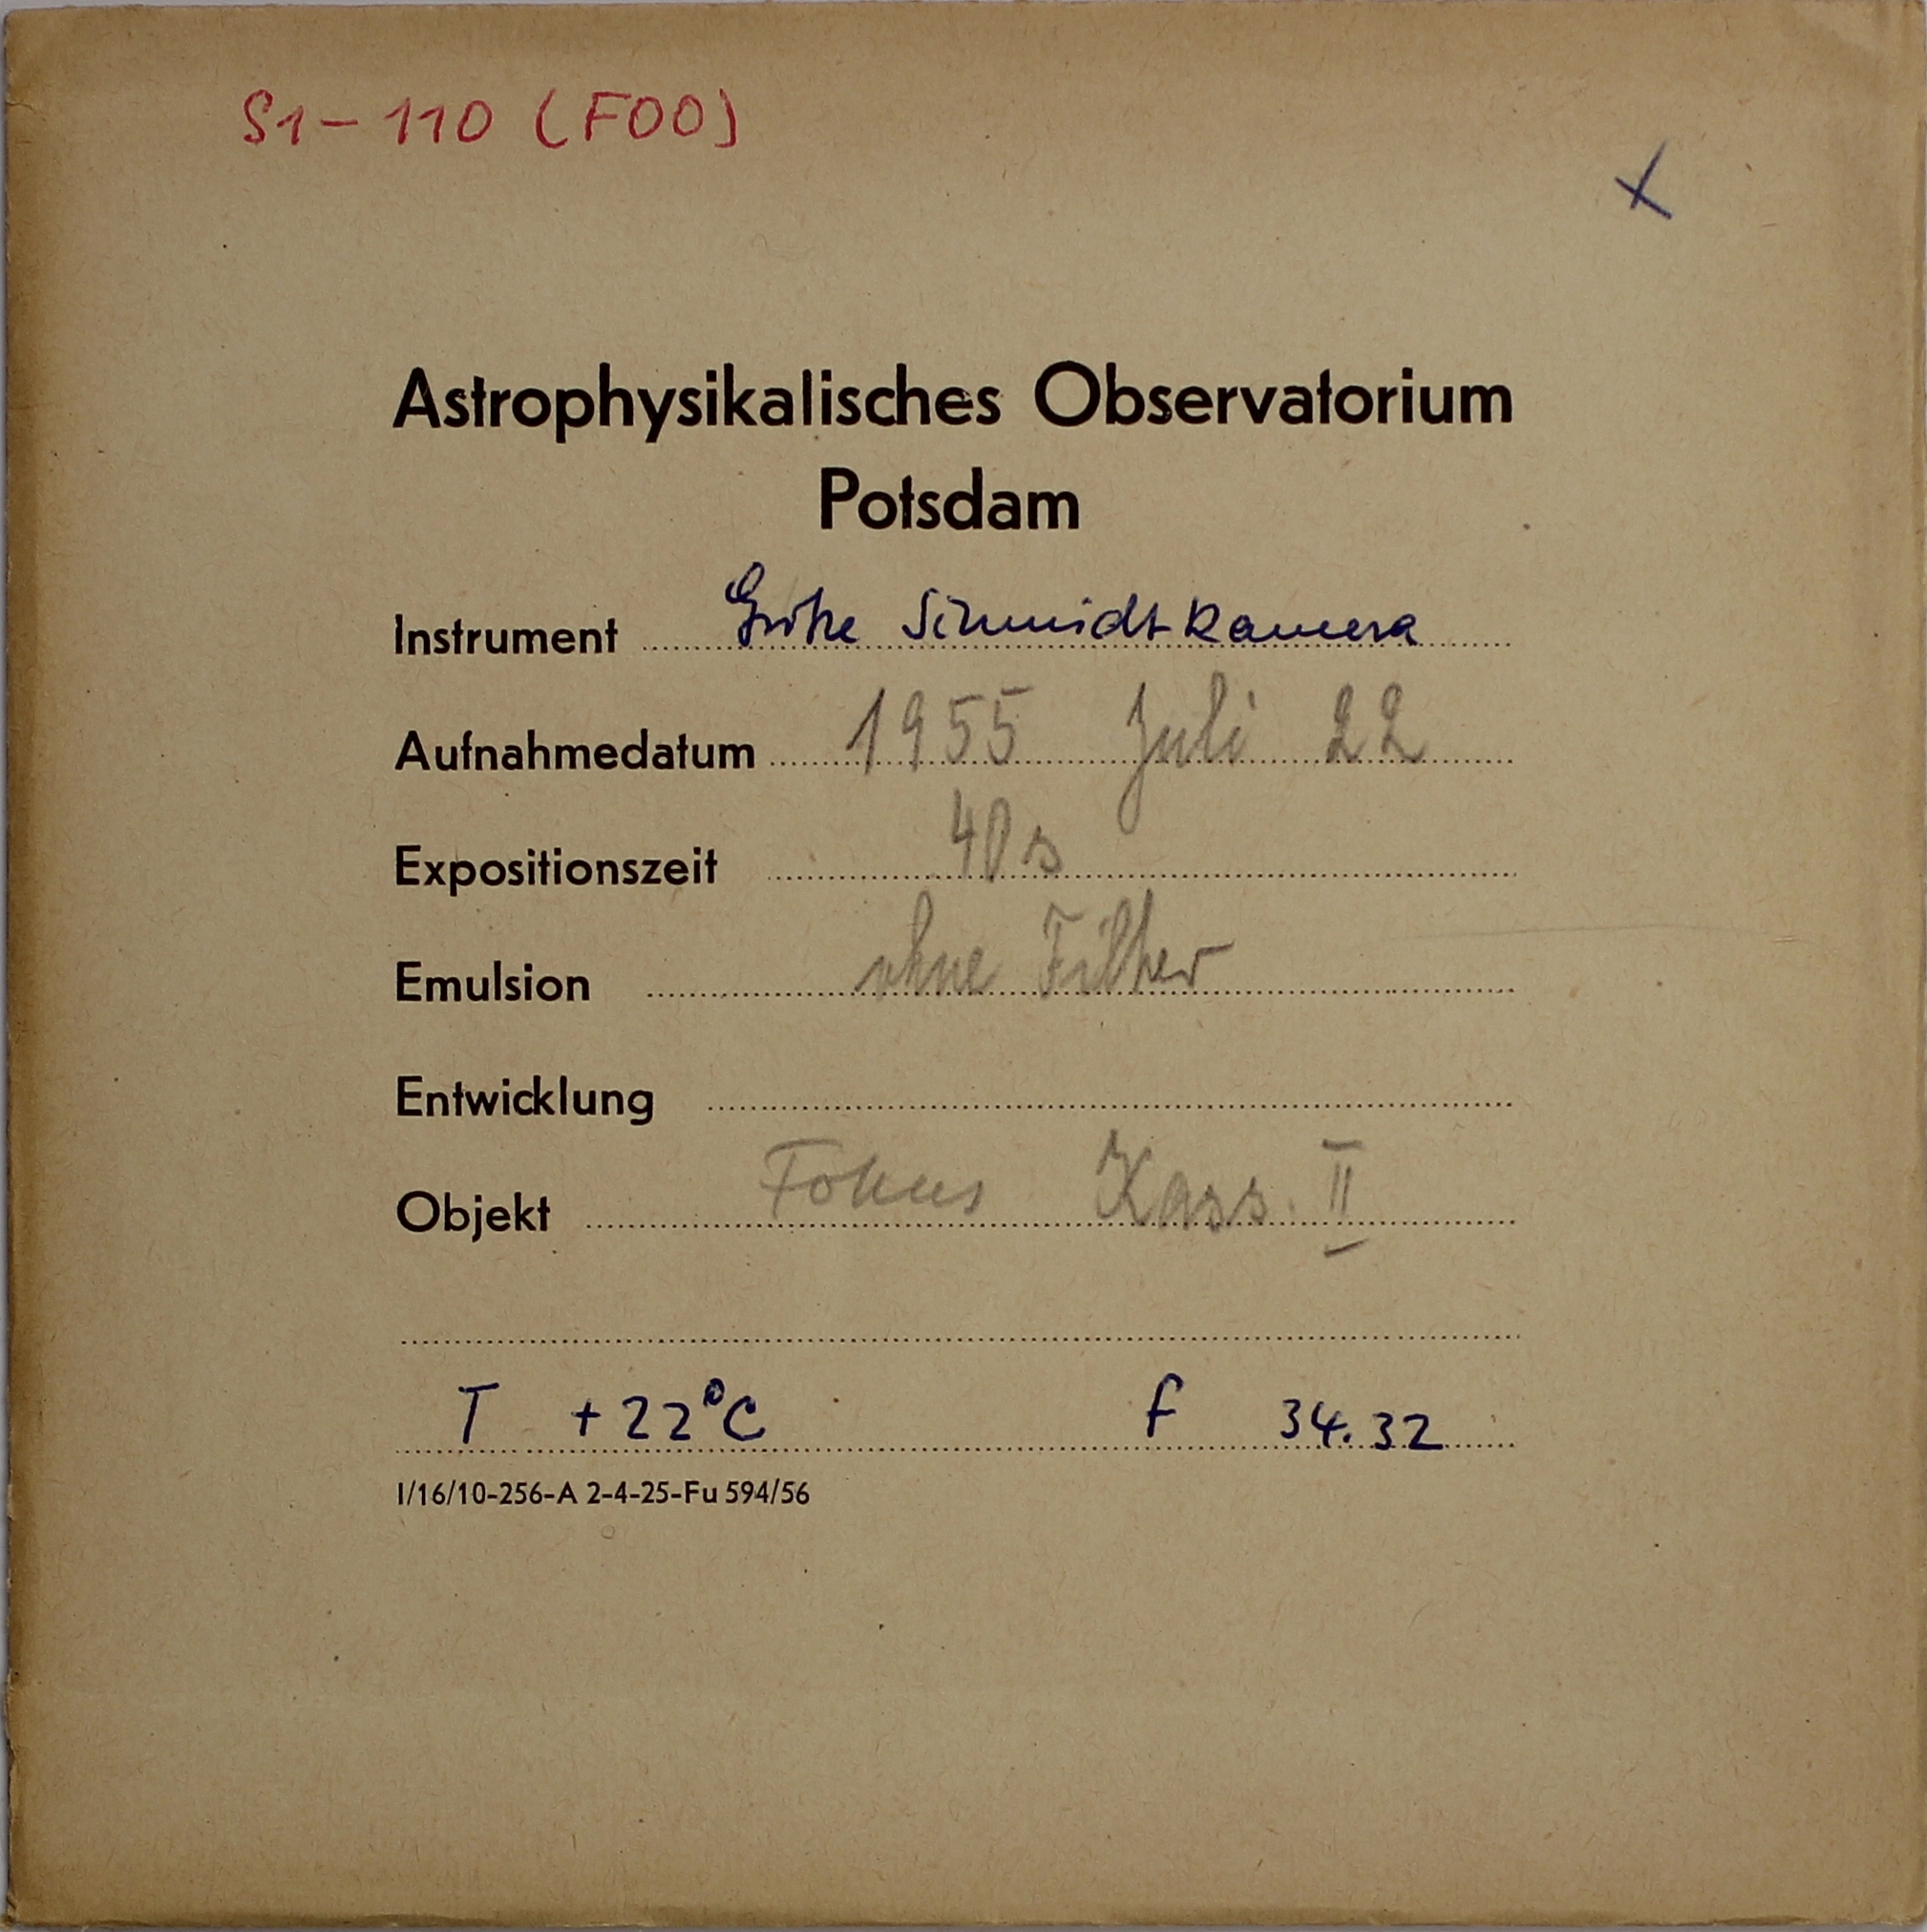 S1-110 (F00)
x
Astrophysikalisches Observatorium
Potsdam
Instrument Große Schmidtkamera
Aufnahmedatum 1955 Juli 22
Expositionszeit 40s
Emulsion ohne Filter
Entwicklung
Objekt Fokus Kass. II
T +22°C f 34.32
I/16/10-256-A 2-4-25-Fu 594/56